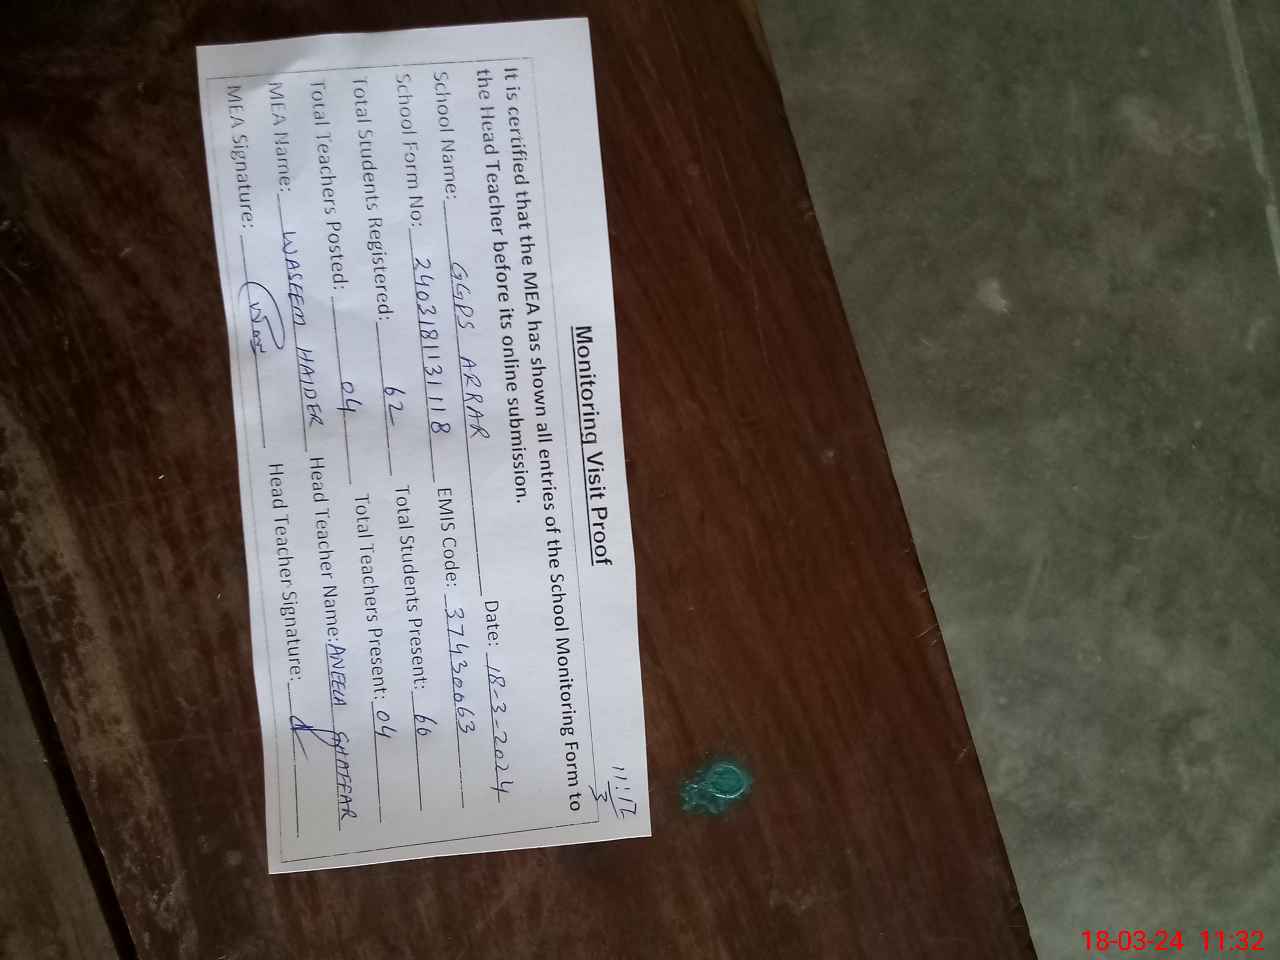 11:12
3
Monitoring Visit Proof
It is certified that the MEA has shown all entries of the School Monitoring Form to
the Head Teacher before its online submission.
School Name: GGPS ARRAR Date: 18-3-2024
School Form No: 240318113118 EMIS Code: 37430663
Total Students Registered: 62 Total Students Present: 60
Total Teachers Posted: 04 Total Teachers Present: 04
MEA Name: WASEEM HAIDER Head Teacher Name: ANEELA GHAFFAR
MEA Signature: Head Teacher Signature:
18-03-24 11:32